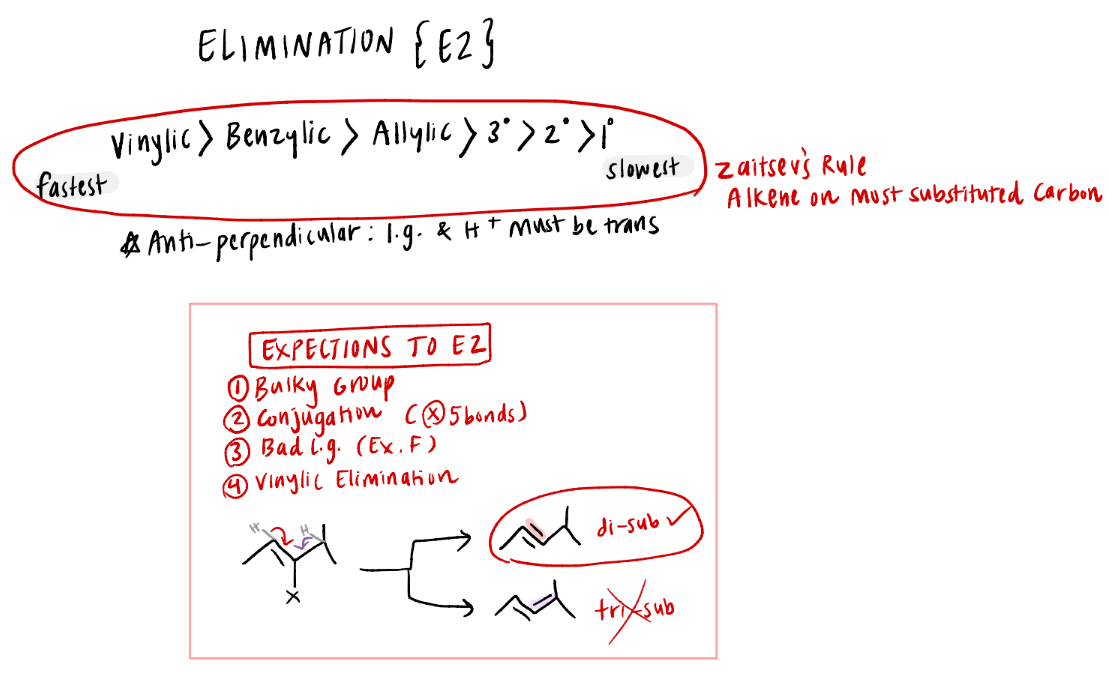 ELIMINATION {E2}
Vinylic > Benzylic > Allylic > 3° > 2° > 1°
fastest
slowest
Zaitsev's Rule
Alkene on Most substituted Carbon
☆ Anti-perpendicular: l.g. & H⁺ must be trans
EXPECTIONS TO E2
① Bulky Group
② Conjugation (ⓧ 5 bonds)
③ Bad l.g. (Ex. F)
④ Vinylic Elimination
H
H
X
di-sub ✓
tri-sub